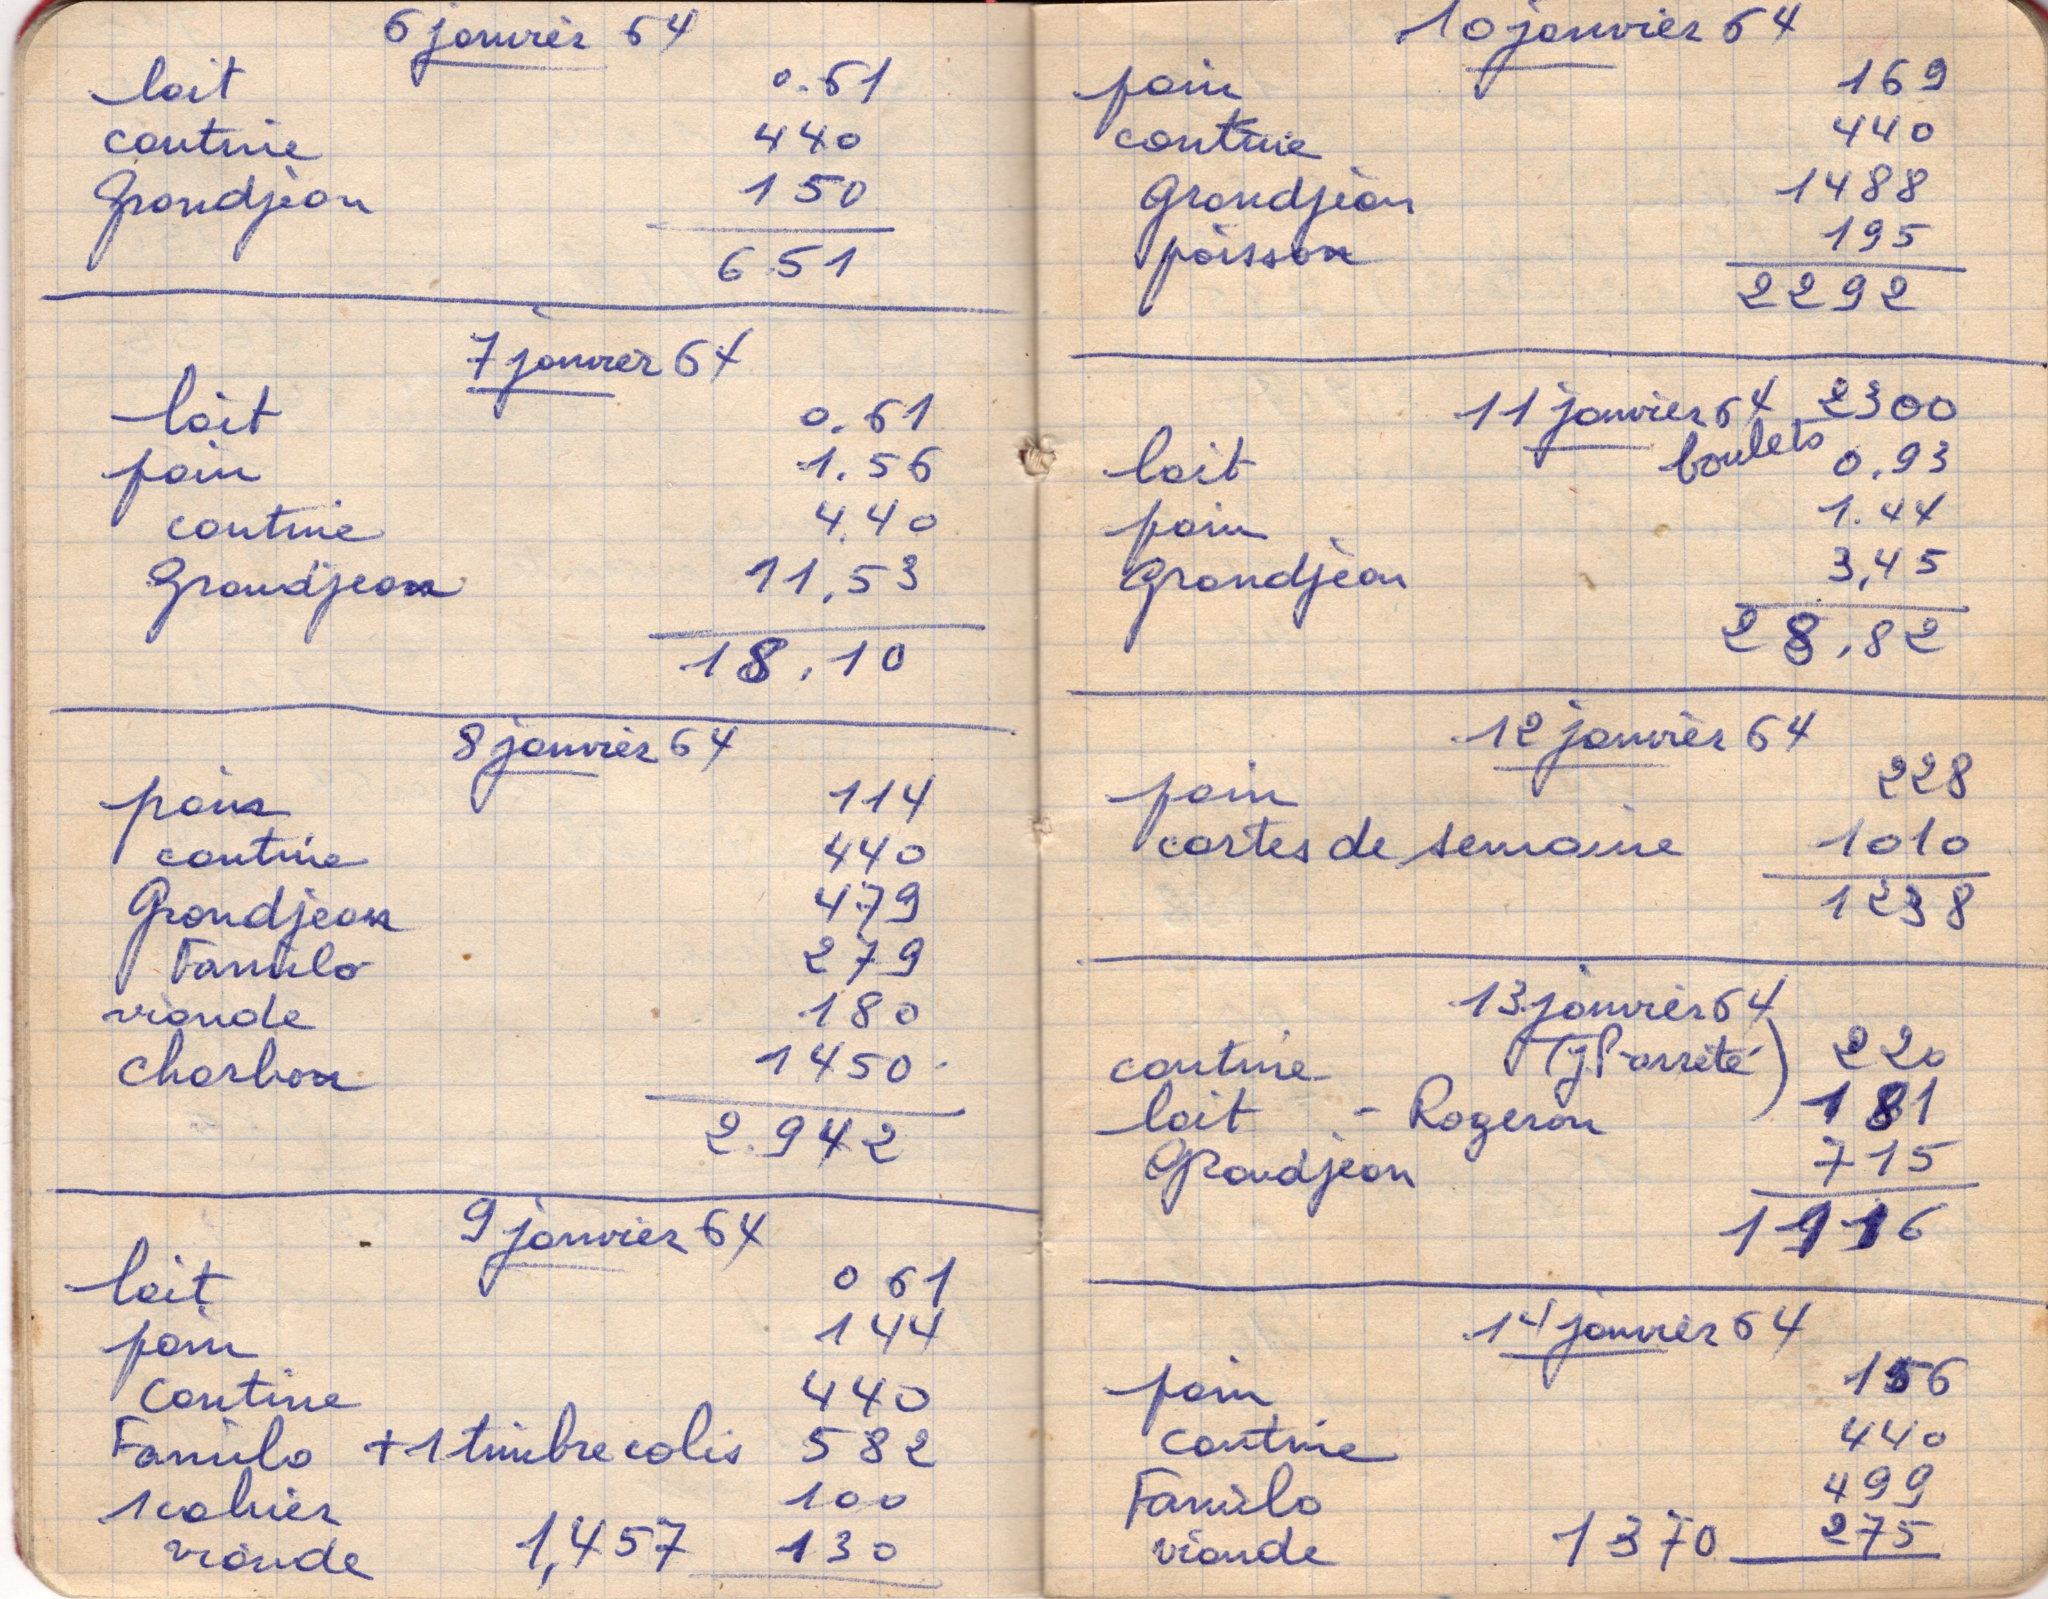 6 janvier 64
lait 0.61
cantine 440
Grandjean 150
6.51
7 janvier 64
lait 0.61
pain 1.56
cantine 4.40
Grandjean 11.53
18.10
8 janvier 64
pain 114
cantine 440
Grandjean 479
Familo 279
viande 180
charbon 1450
2.942
9 janvier 64
lait 0 61
pain 144
cantine 440
Familo +1 timbre colis 582
1 cahier 100
viande 1,457 130
10 janvier 64
pain 169
cantine 440
Grandjean 1488
poisson 195
2292
11 janvier 64 2300
lait boulets 0.93
pain 1.44
Grandjean 3,45
28.82
12 janvier 64
pain 228
cartes de semaine 1010
1238
13 janvier 64
cantine (JP arrêté) 220
lait - Rogeron 181
Grandjean 715
1116
14 janvier 64
pain 156
cantine 440
Familo 499
viande 1370 275